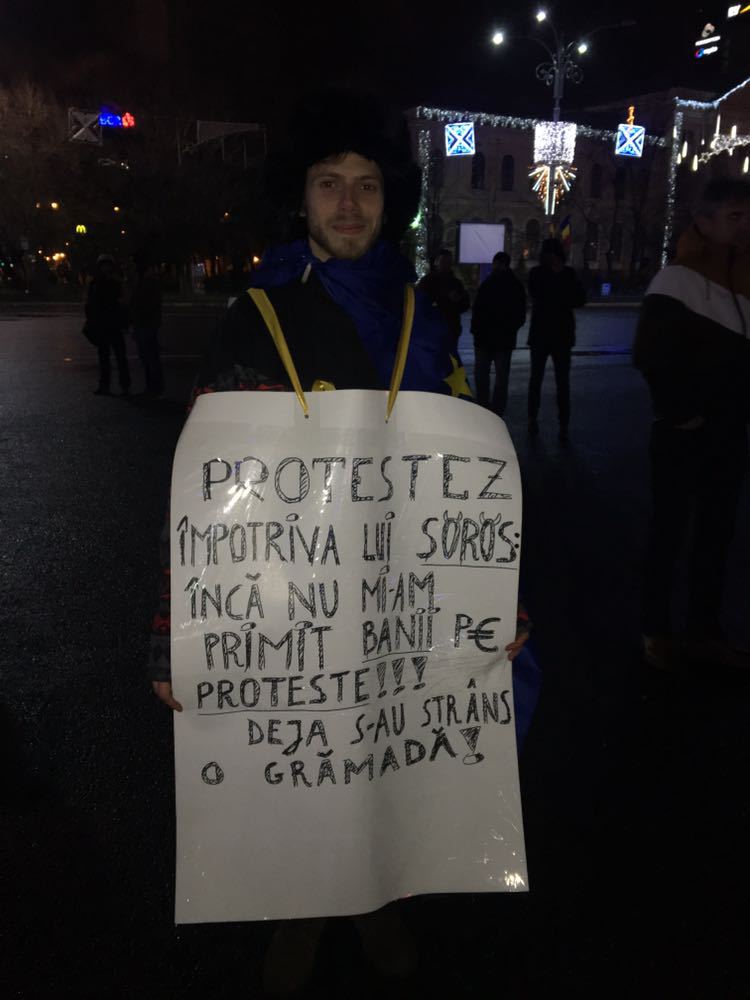 PROTESTEZ
ÎMPOTRIVA LUI SOROS:
ÎNCĂ NU MI-AM
PRIMIT BANII P€
PROTESTE!!!
DEJA S-AU STRÂNS
O GRĂMADĂ!